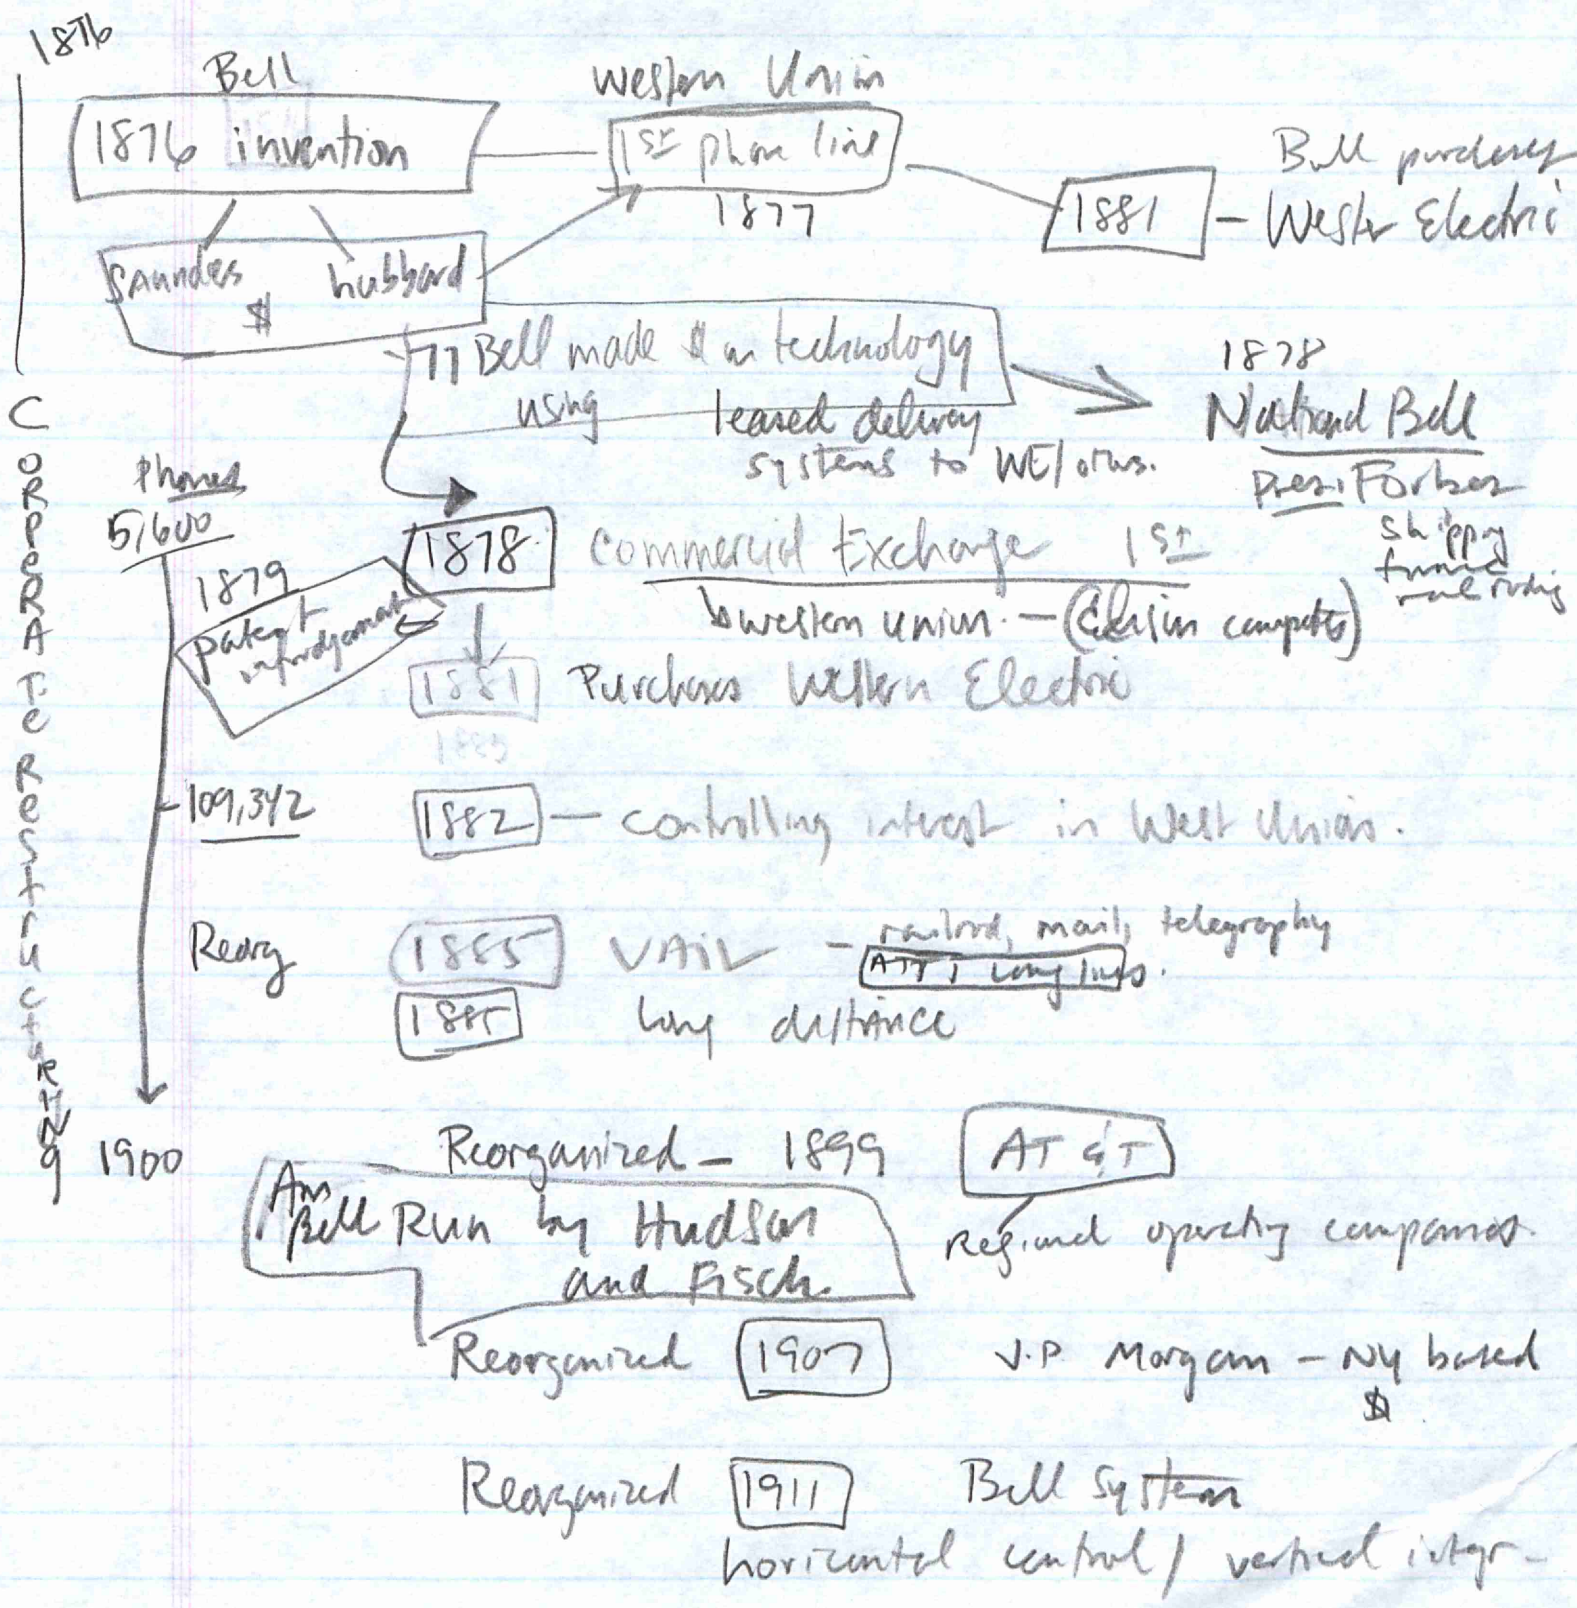 1876
Bell
Western Union
1876 invention
1st phone line
1877
Bell purchases
1881 - Wester Electric
Saunders hubbard
$
77 Bell made $ on technology
using leased delivery
systems to WE/
1878
National Bell
Pres: Forbes
shipping
Corporate Restructuring
Phones
5,600
1879
patent infridgement
1878 Commercial Exchange 1st
western union - (Edison competes)
1881 Purchases Western Electric
1885
109,342
1882 - controlling interest in West Union.
Reorg
1885 VAIL - railroad, mail, telegraphy
ATT, Long lines.
1885 long distance
1900
Reorganized - 1899 AT&T
Regional operating companies.
Am Bell Run by Hudson
and Fisch.
Reorganized 1907 J.P. Morgan - NY based
$
Reorganized 1911 Bell System
horizontal control / vertical integr-